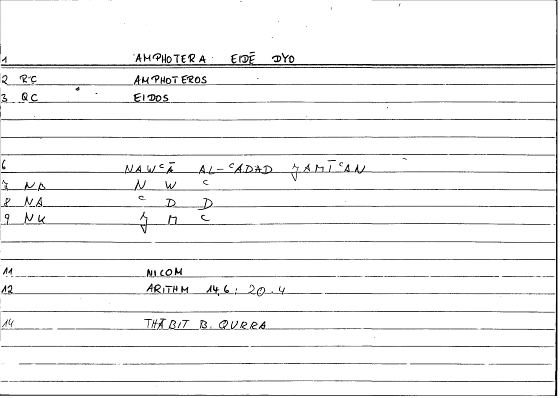 1 AMPHOTERA EIDĒ DYO
2 RC AMPHOTEROS
3 QC EIDOS
6 NAWʿĀ AL-ʿADAD ǦAMĪʿAN
7 NB N W ʿ
8 NA ʿ D D
9 NK Ǧ M ʿ
11 NICOM
12 ARITHM 14,6; 20.4
14 THĀBIT B. QURRA